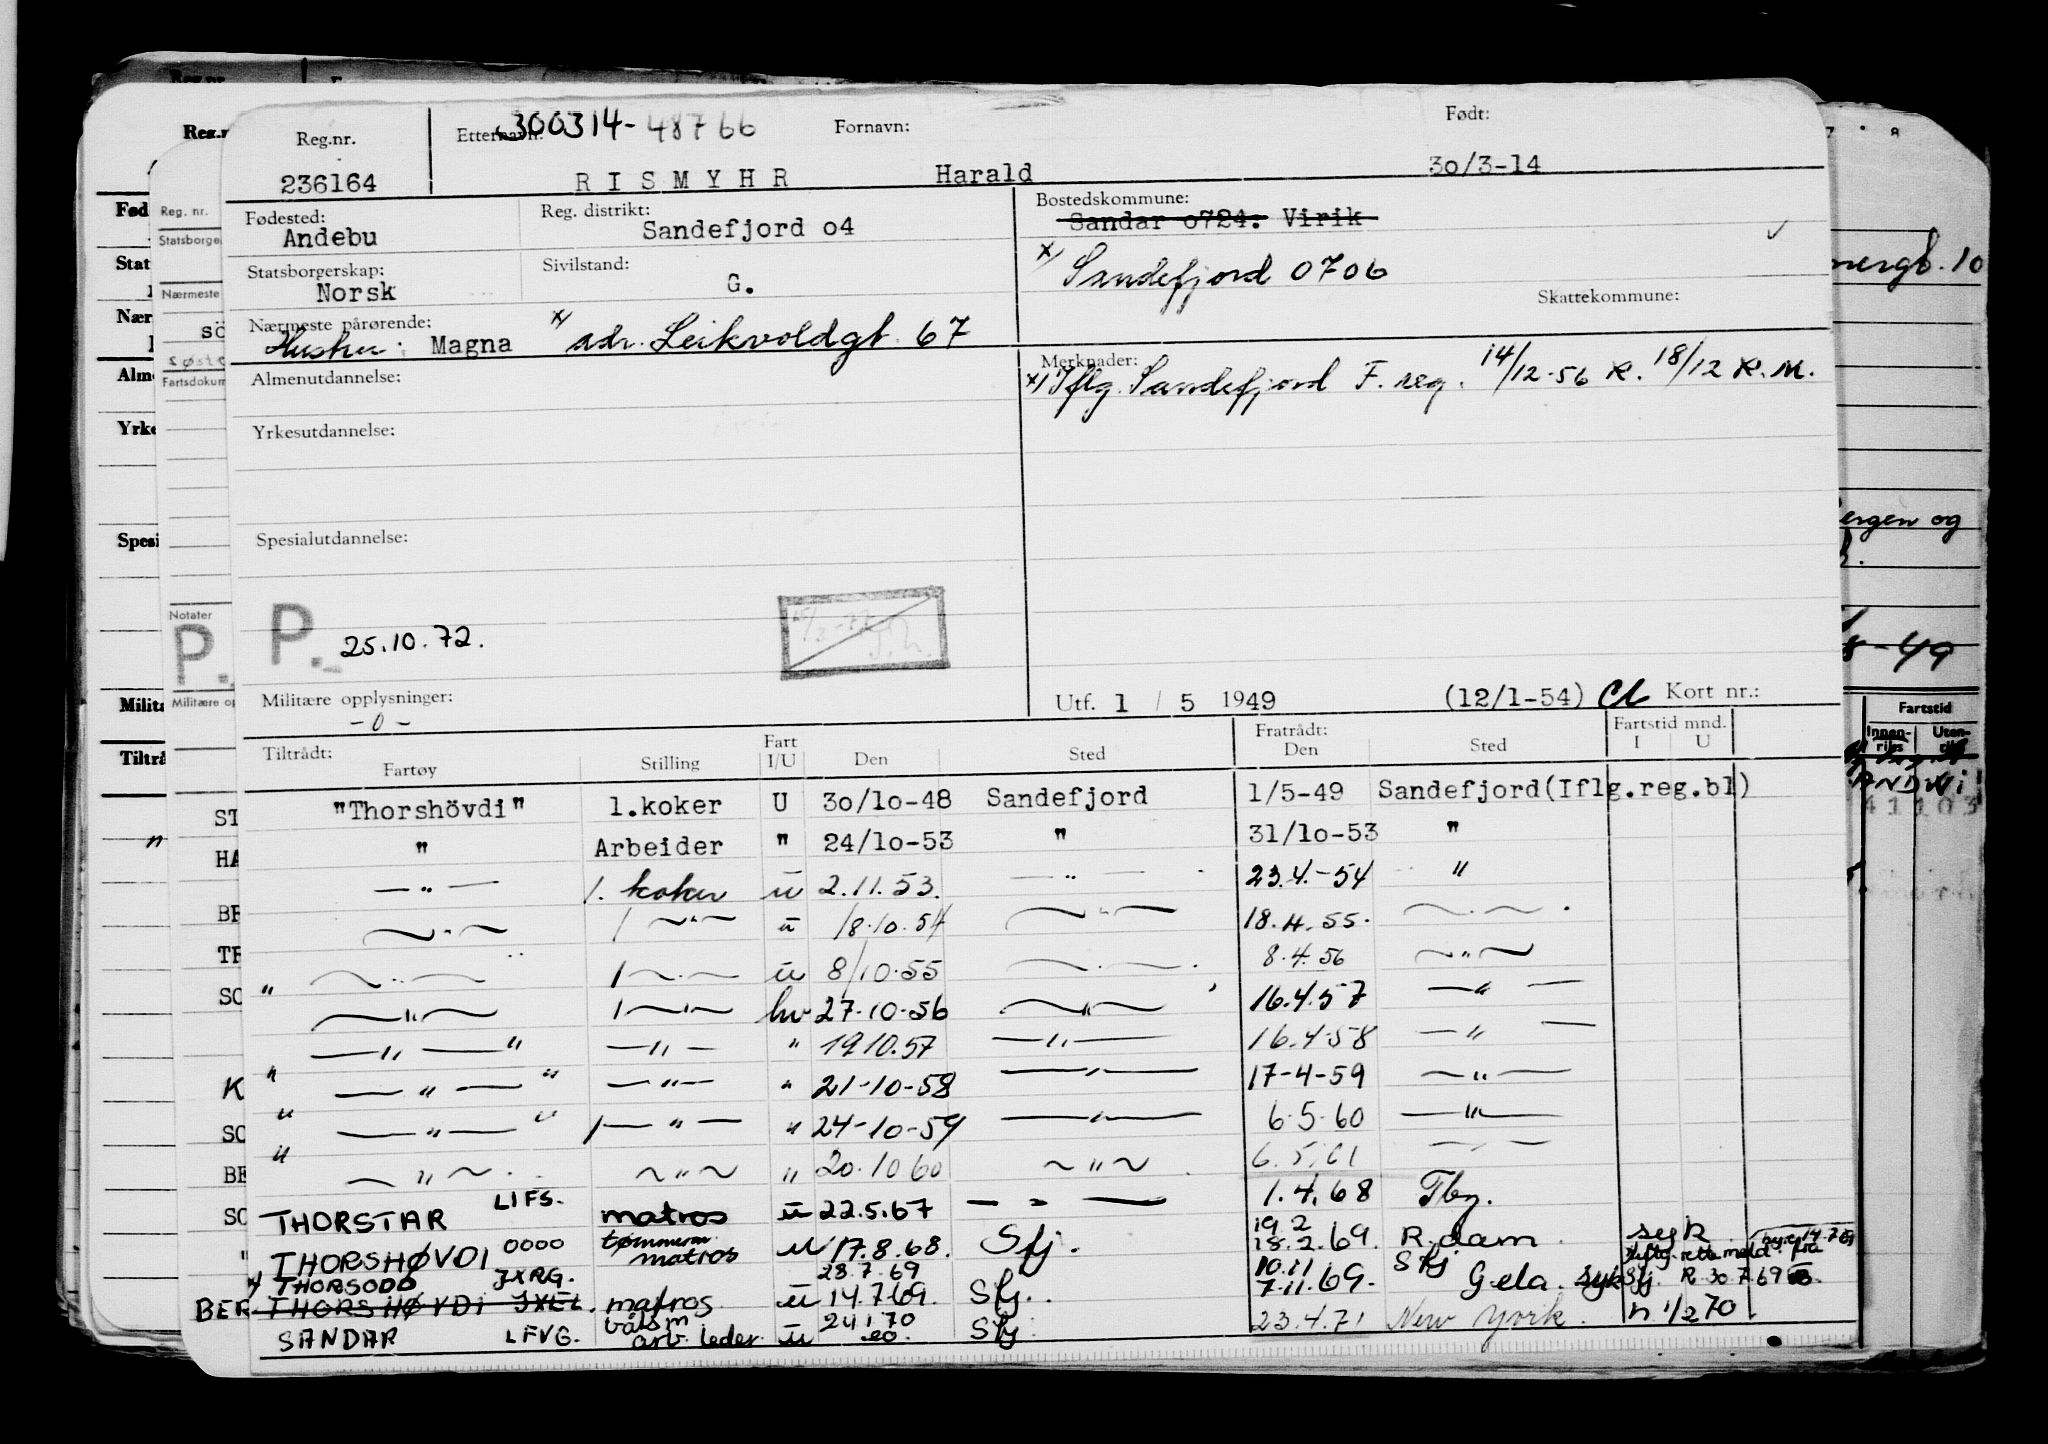 Reg.nr. Etternavn: 300314-48766 Fornavn: Født:
236164 RISMYHR Harald 30/3-14
Fødested: Andebu Reg. distrikt: Sandefjord 04 Bostedskommune: Sandar 0724. Virik
x/ Sandefjord 0706
Statsborgerskap: Norsk Sivilstand: G.
Skattekommune:
Nærmeste pårørende: Hustru: Magna x/ adr. Leikvoldgt. 67
Merknader: x/ Iflg. Sandefjord F. reg. 14/12-56 K. 18/12 K.M.
Almenutdannelse:
Yrkesutdannelse:
Spesialutdannelse:
P. 25.10.72.
Militære opplysninger: -0-
Utf. 1 / 5 1949 (12/1-54) Kort nr.:
Tiltrådt: Fartøy Stilling Fart I/U Den Sted Fratrådt: Den Sted Fartstid mnd. I U
"Thorshövdi" 1.koker U 30/10-48 Sandefjord 1/5-49 Sandefjord(Iflg.reg.bl)
" Arbeider " 24/10-53 " 31/10-53 "
— " — 1. koker u 2.11.53. — " — 23.4.-54 "
— " — 1 — " — u 18.10.54 — " — 18.4.55. — " —
— " — 1 — " — u 8/10.55 — " — 8.4.56 — " —
" — " — 1 — " — hv 27-10-56 — " — 16.4.57 — " —
— " — " — " — " 19.10.57 — " — 16.4-58 — " —
" — " — " — " — " 21-10-58 — " — 17-4-59 — " —
" — " — " 1 — " — " 24-10-59 — " — 6.5.60 — " —
" — " — — " — " 20.10.60 — " — 6.5.61 — " —
THORSTAR LIFS. matros u 22.5.67 — " — 1.4.68 Tbg.
THORSHØVDI OOOO tømmerm matros u 17.8.68. Sfj. 19.2 18.2.69. R.dam syk
x/ THORSODD JXRG. 23.7.69 10.11 Sfj
THORSHØVDI JXEL. matros u 14.7.69. Sfj. 7.11.69. Gela. syk Sfj. R. 30.7.69
SANDAR LFVG. båtsm arb. leder u 24.1.70 Sfj 23.4.71 New York. n 1/2 70
Reg.nr
Reg. nr.
Statsborge
Nærmeste
Fartsdokum
Notater
P.
Militære op
Fød
Stat
Nær
Alm
Yrke
Spesi
Milita
Tiltrå
ergen og
8-49
Fartstid
Innen-riks Uten-